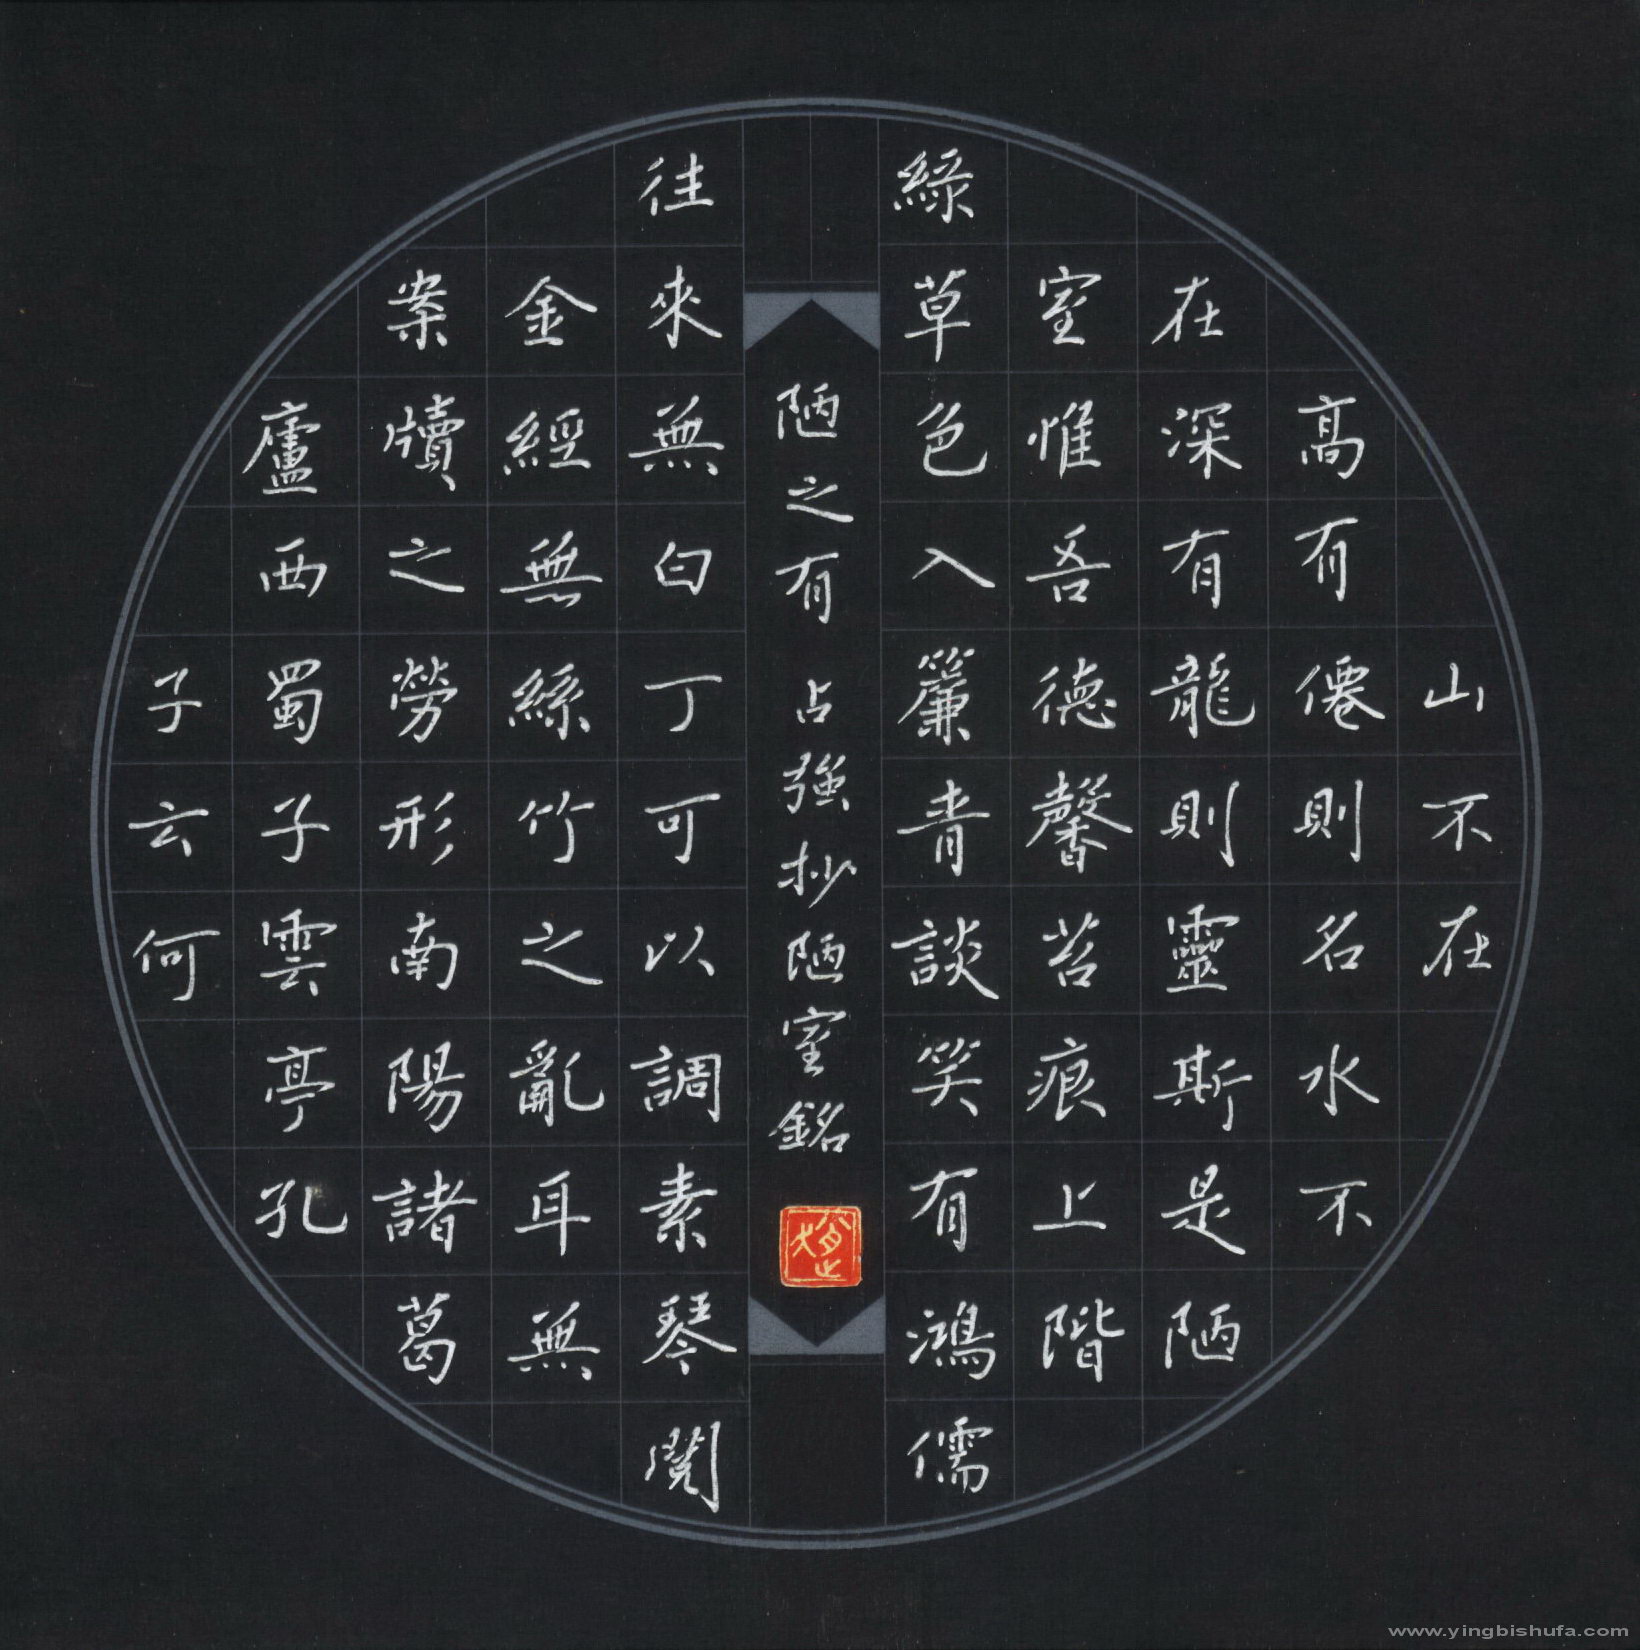 山不在
高有僊則名水不
在深有龍則靈斯是陋
室惟吾德馨苔痕上階
綠草色入簾青談笑有鴻儒
往來無白丁可以調素琴閱
金經無絲竹之亂耳無
案牘之勞形南陽諸葛
廬西蜀子雲亭孔
子云何
陋之有 占強抄陋室銘
www.yingbishufa.com